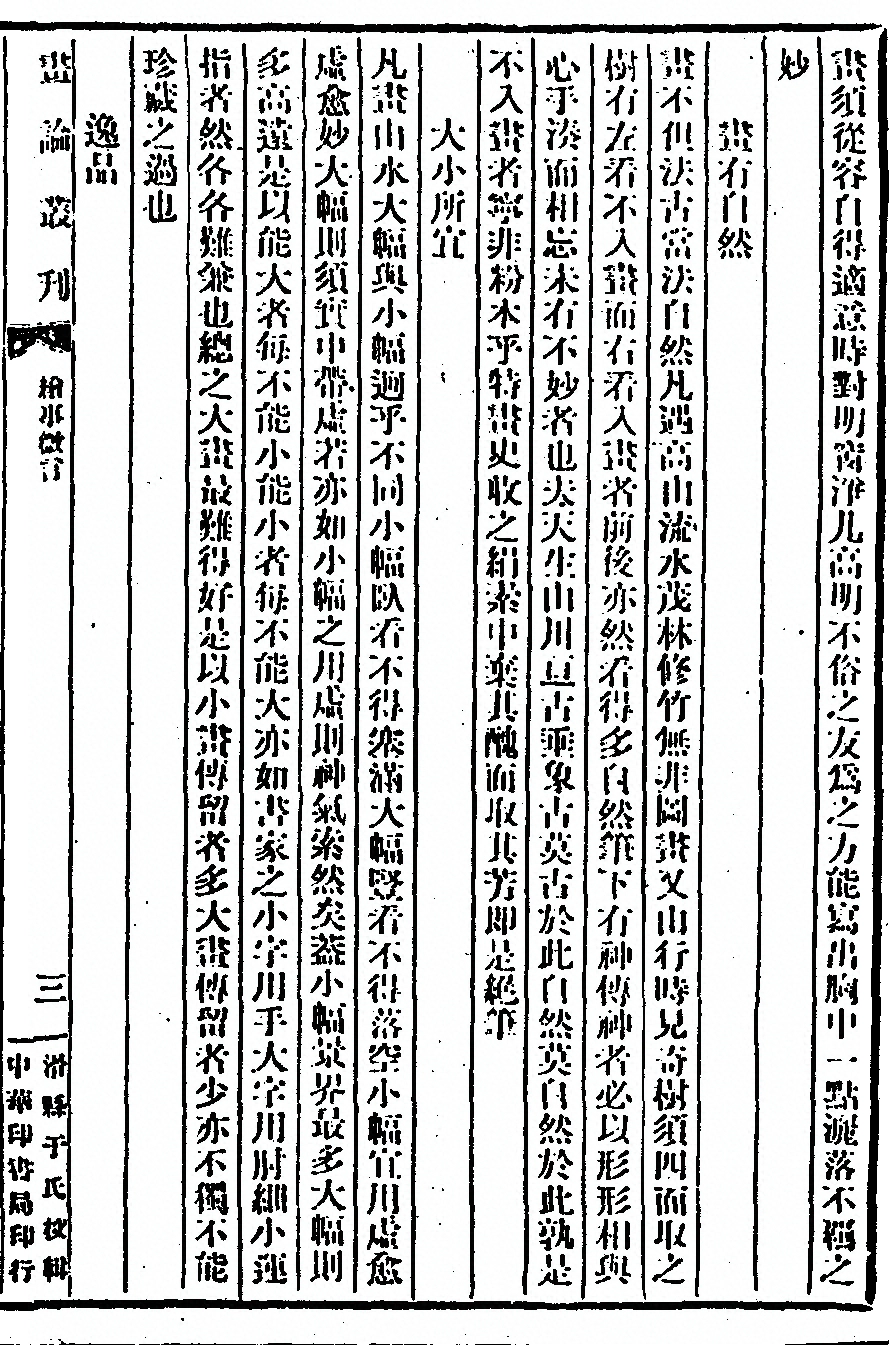 畫須從容自得適意時對明窗淨几高明不俗之友爲之方能寫出胸中一點灑落不羈之
妙
畫有自然
畫不但法古當法自然凡遇高山流水茂林修竹無非圖畫又山行時見奇樹須四面取之
樹有左看不入畫而右看入畫者前後亦然看得多自然筆下有神傳神者必以形形相與
心手湊而相忘未有不妙者也夫天生山川亘古垂象古莫古於此自然莫自然於此孰是
不入畫者寧非粉本乎特畫史收之絹素中棄其醜而取其芳即是絕筆
大小所宜
凡畫山水大幅與小幅迥乎不同小幅臥看不得塞滿大幅豎看不得落空小幅宜用虛愈
虛愈妙大幅則須實中帶虛若亦如小幅之用虛則神氣索然矣蓋小幅景界最多大幅則
多高遠是以能大者每不能小能小者每不能大亦如書家之小字用手大字用肘細小運
指者然各各難兼也總之大畫最難得好是以小畫傳留者多大畫傳留者少亦不獨不能
珍藏之過也
逸品
畫論叢刊
繪事微言
三
滑縣于氏校輯
中華印書局印行